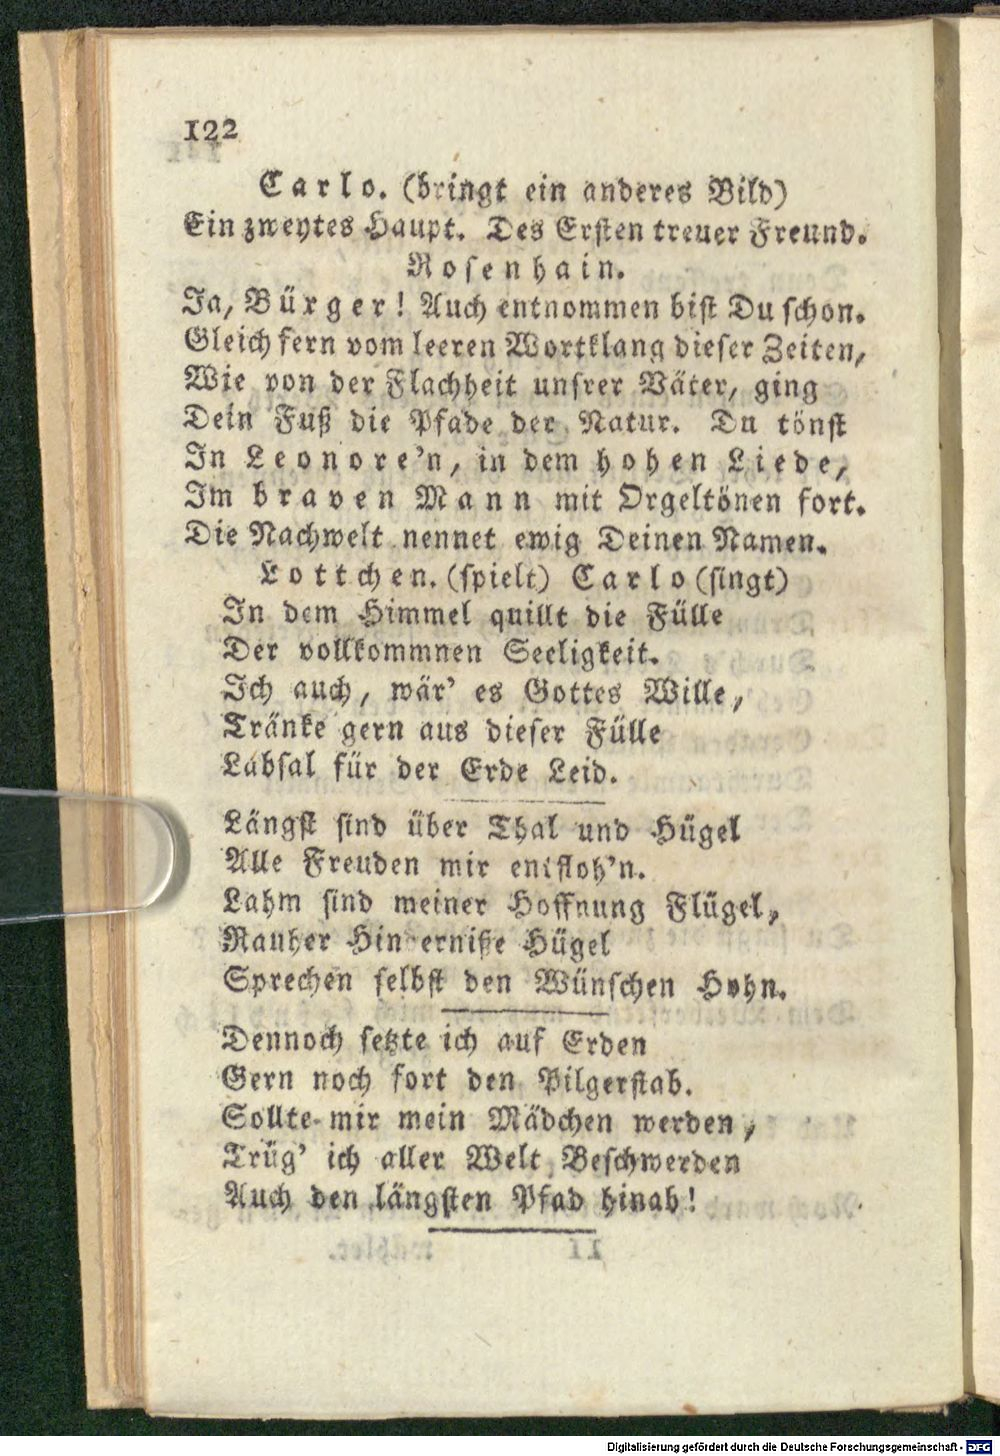 122
Carlo. (bringt ein anderes Bild)
Ein zweytes Haupt. Des Ersten treuer Freund.
Rosenhain.
Ja, Bürger! Auch entnommen bist Du schon.
Gleich fern vom leeren Wortklang dieser Zeiten,
Wie von der Flachheit unsrer Väter, ging
Dein Fuß die Pfade der Natur. Du tönst
In Leonore'n, in dem hohen Liede,
Im braven Mann mit Orgeltönen fort.
Die Nachwelt nennet ewig Deinen Namen.
Lottchen. (spielt) Carlo (singt)
In dem Himmel quillt die Fülle
Der vollkommnen Seeligkeit.
Ich auch, wär' es Gottes Wille,
Tränke gern aus dieser Fülle
Labsal für der Erde Leid.
Längst sind über Thal und Hügel
Alle Freuden mir entfloh'n.
Lahm sind meiner Hoffnung Flügel,
Rauher Hinderniße Hügel
Sprechen selbst den Wünschen Hohn.
Dennoch setzte ich auf Erden
Gern noch fort den Pilgerstab.
Sollte mir mein Mädchen werden,
Trüg' ich aller Welt Beschwerden
Auch den längsten Pfad hinab!
Digitalisierung gefördert durch die Deutsche Forschungsgemeinschaft - DFG